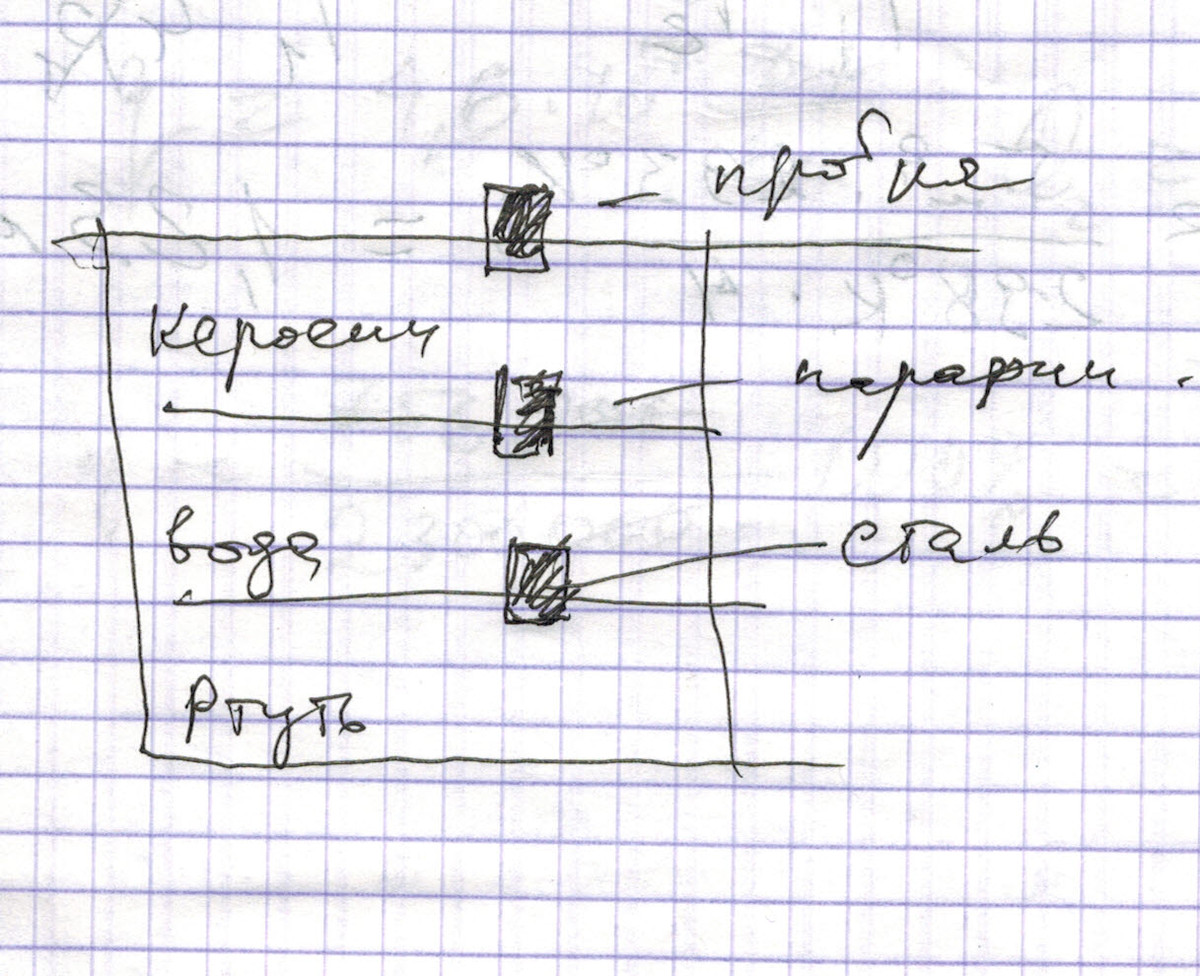 пробка
Керосин
парафин
вода
сталь
Ртуть